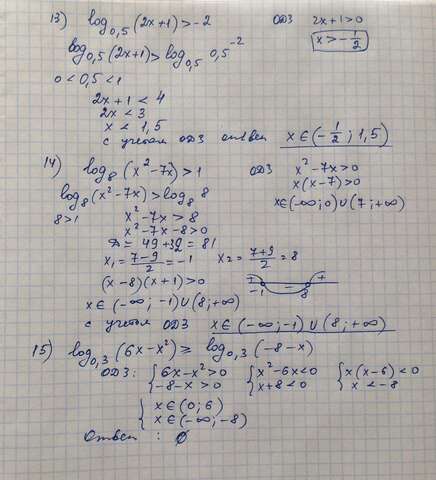 13) log₀,₅(2x+1)>-2 ОДЗ 2x+1>0
log₀,₅(2x+1)>log₀,₅ 0,5⁻² x>-1/2
0<0,5<1
2x+1<4
2x<3
x<1,5
с учетом ОДЗ ответ x∈(-1/2; 1,5)
14) log₈(x²-7x)>1 ОДЗ x²-7x>0
log₈(x²-7x)>log₈ 8 x(x-7)>0
8>1 x²-7x>8 x∈(-∞;0)∪(7;+∞)
x²-7x-8>0
Д=49+32=81
x₁=(7-9)/2=-1 x₂=(7+9)/2=8
(x-8)(x+1)>0 + -1 - 8 +
x∈(-∞;-1)∪(8;+∞)
с учетом ОДЗ x∈(-∞;-1)∪(8;+∞)
15) log₀,₃(6x-x²)≥log₀,₃(-8-x)
ОДЗ: {6x-x²>0 {x²-6x<0 {x(x-6)<0
{-8-x>0 {x+8<0 {x<-8
{x∈(0;6)
{x∈(-∞;-8)
Ответ: ∅